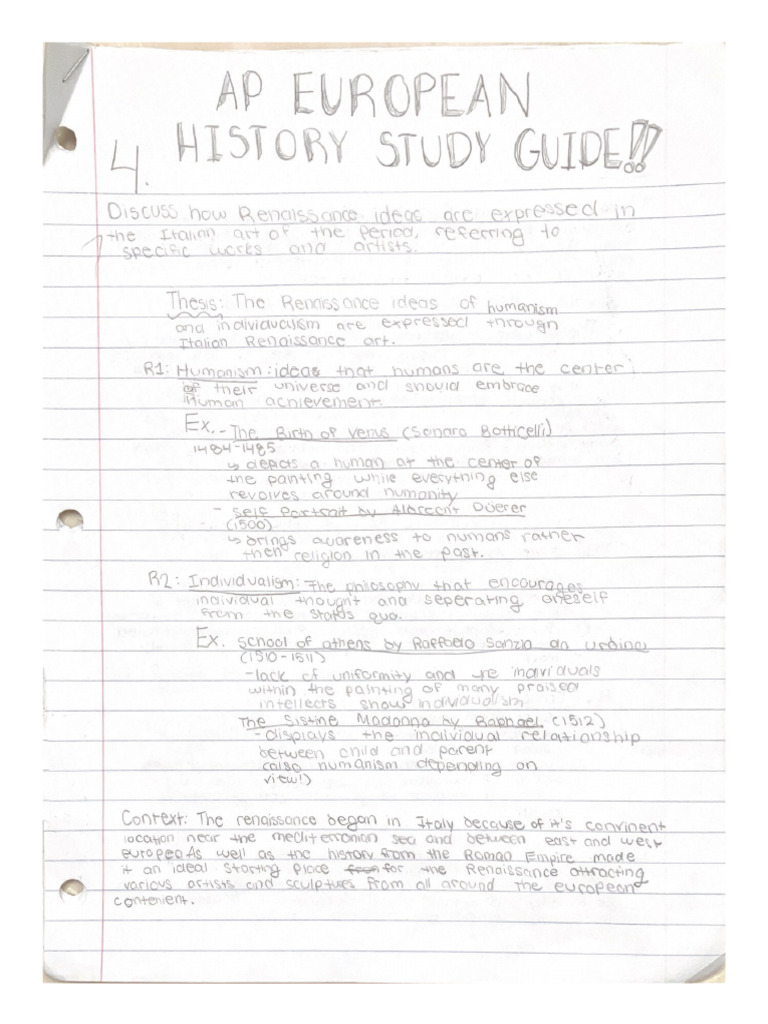 AP EUROPEAN
HISTORY STUDY GUIDE!!
4.
Discuss how Renaissance ideas are expressed in
the Italian art of the period, referring to
specific works and artists.
Thesis: The Renaissance ideas of humanism
and individualism are expressed through
Italian Renaissance art.
R1: Humanism: ideas that humans are the center
of their universe and should embrace
Human achievement.
Ex. - The Birth of Venus (Sandro Botticelli)
1484-1485
↳ depicts a human at the center of
the painting while everything else
revolves around humanity
- Self Portrait by Albrecht Düerer
(1500)
↳ brings awareness to humans rather
then religion in the past.
R2: Individualism: The philosophy that encourages
individual thought and seperating oneself
from the status quo.
Ex. School of athens by Raffaelo Sanzio an urbino
(1510-1511)
- lack of uniformity and individuals
within the painting of many praised
intellects show individualism
The Sistine Madonna by Raphael (1512)
- displays the individual relationship
between child and parent
(also humanism depending on
view!)
Context: The renaissance began in Italy because of it's convinent
location near the mediterranian sea and between east and west
europe. As well as the history from the Roman Empire made
it an ideal starting place for the Renaissance attracting
various artists and sculptures from all around the european
contenient.